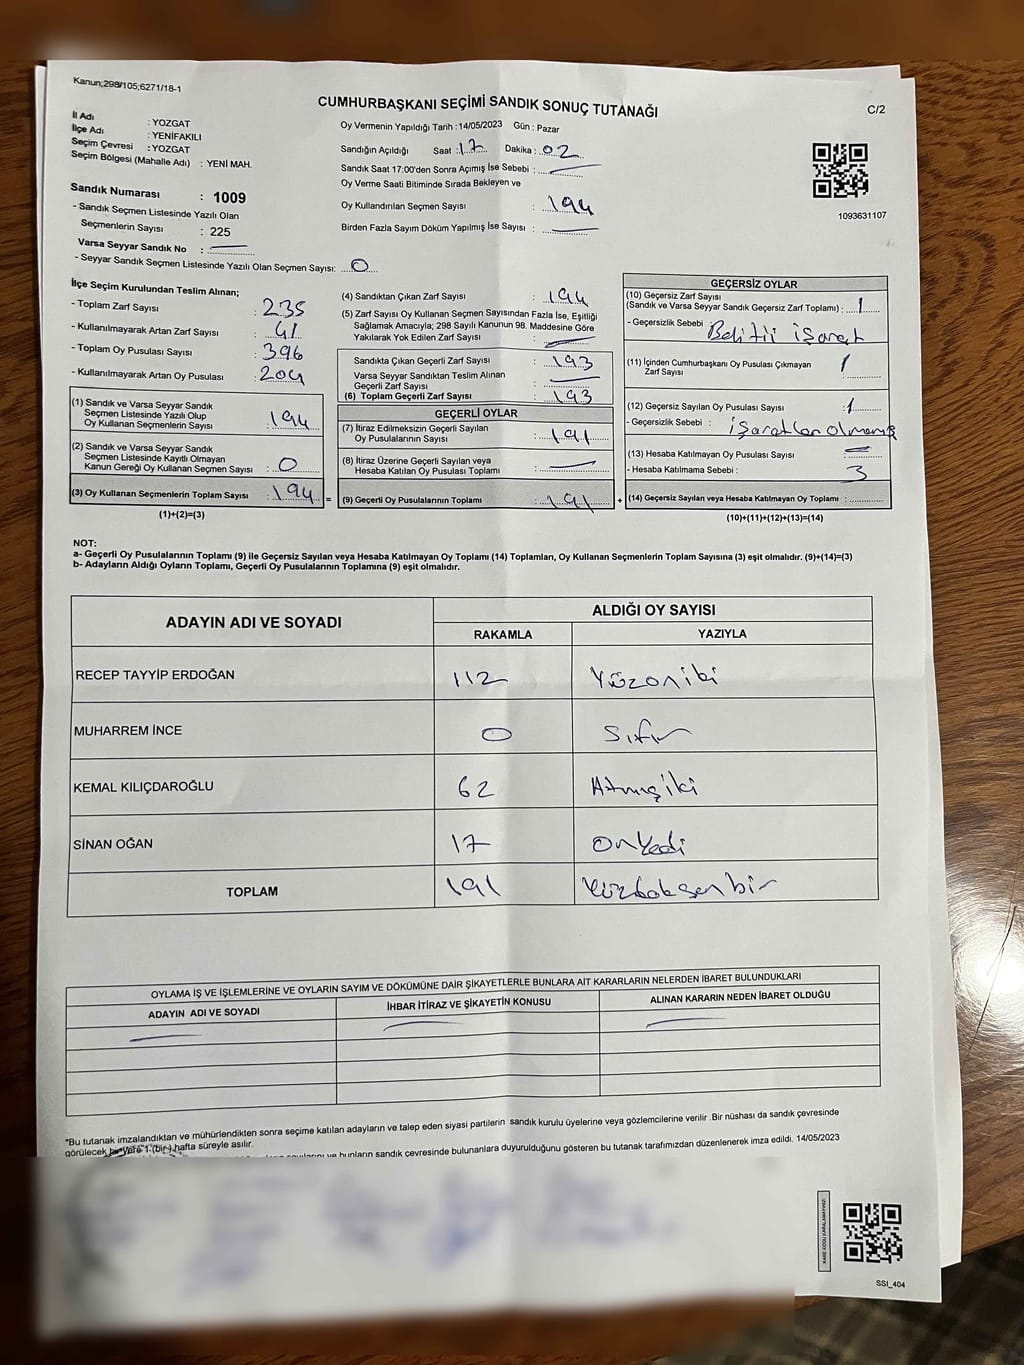 Kanun;298/105;6271/18-1
CUMHURBAŞKANI SEÇİMİ SANDIK SONUÇ TUTANAĞI
C/2
İl Adı : YOZGAT
İlçe Adı : YENİFAKILI
Seçim Çevresi : YOZGAT
Seçim Bölgesi (Mahalle Adı) : YENİ MAH.
Sandık Numarası : 1009
- Sandık Seçmen Listesinde Yazılı Olan
Seçmenlerin Sayısı : 225
Varsa Seyyar Sandık No :
- Seyyar Sandık Seçmen Listesinde Yazılı Olan Seçmen Sayısı: 0
Oy Vermenin Yapıldığı Tarih : 14/05/2023 Gün : Pazar
Sandığın Açıldığı Saat : 17 Dakika : 02
Sandık Saat 17:00'den Sonra Açımış İse Sebebi :
Oy Verme Saati Bitiminde Sırada Bekleyen ve
Oy Kullandırılan Seçmen Sayısı : 194
Birden Fazla Sayım Döküm Yapılmış İse Sayısı :
1093631107
İlçe Seçim Kurulundan Teslim Alınan;
- Toplam Zarf Sayısı : 235
- Kullanılmayarak Artan Zarf Sayısı : 41
- Toplam Oy Pusulası Sayısı : 396
- Kullanılmayarak Artan Oy Pusulası : 204
(1) Sandık ve Varsa Seyyar Sandık
Seçmen Listesinde Yazılı Olup
Oy Kullanan Seçmenlerin Sayısı : 194
(2) Sandık ve Varsa Seyyar Sandık
Seçmen Listesinde Kayıtlı Olmayan
Kanun Gereği Oy Kullanan Seçmen Sayısı : 0
(3) Oy Kullanan Seçmenlerin Toplam Sayısı : 194 =
(1)+(2)=(3)
(4) Sandıktan Çıkan Zarf Sayısı : 194
(5) Zarf Sayısı Oy Kullanan Seçmen Sayısından Fazla İse, Eşitliği
Sağlamak Amacıyla; 298 Sayılı Kanunun 98. Maddesine Göre
Yakılarak Yok Edilen Zarf Sayısı :
Sandıkta Çıkan Geçerli Zarf Sayısı : 193
Varsa Seyyar Sandıktan Teslim Alınan
Geçerli Zarf Sayısı :
(6) Toplam Geçerli Zarf Sayısı : 193
GEÇERLİ OYLAR
(7) İtiraz Edilmeksizin Geçerli Sayılan
Oy Pusulalarının Sayısı : 191
(8) İtiraz Üzerine Geçerli Sayılan veya
Hesaba Katılan Oy Pusulası Toplamı :
(9) Geçerli Oy Pusulalarının Toplamı : 191 +
GEÇERSİZ OYLAR
(10) Geçersiz Zarf Sayısı
(Sandık ve Varsa Seyyar Sandık Geçersiz Zarf Toplamı) : 1
- Geçersizlik Sebebi : Belitli işaret
(11) İçinden Cumhurbaşkanı Oy Pusulası Çıkmayan
Zarf Sayısı : 1
(12) Geçersiz Sayılan Oy Pusulası Sayısı : 1
- Geçersizlik Sebebi : işaretlen olmamış
(13) Hesaba Katılmayan Oy Pusulası Sayısı :
- Hesaba Katılmama Sebebi : 3
(14) Geçersiz Sayılan veya Hesaba Katılmayan Oy Toplamı :
(10)+(11)+(12)+(13)=(14)
NOT:
a- Geçerli Oy Pusulalarının Toplamı (9) ile Geçersiz Sayılan veya Hesaba Katılmayan Oy Toplamı (14) Toplamları, Oy Kullanan Seçmenlerin Toplam Sayısına (3) eşit olmalıdır. (9)+(14)=(3)
b- Adayların Aldığı Oyların Toplamı, Geçerli Oy Pusulalarının Toplamına (9) eşit olmalıdır.
ADAYIN ADI VE SOYADI ALDIĞI OY SAYISI
RAKAMLA YAZIYLA
RECEP TAYYİP ERDOĞAN 112 Yüzoniki
MUHARREM İNCE 0 Sıfır
KEMAL KILIÇDAROĞLU 62 Atmışiki
SİNAN OĞAN 17 Onyedi
TOPLAM 191 Yüzdoksenbir
OYLAMA İŞ VE İŞLEMLERİNE VE OYLARIN SAYIM VE DÖKÜMÜNE DAİR ŞİKAYETLERLE BUNLARA AİT KARARLARIN NELERDEN İBARET BULUNDUKLARI
ADAYIN ADI VE SOYADI İHBAR İTİRAZ VE ŞİKAYETİN KONUSU ALINAN KARARIN NEDEN İBARET OLDUĞU
*Bu tutanak imzalandıktan ve mühürlendikten sonra seçime katılan adayların ve talep eden siyasi partilerin sandık kurulu üyelerine veya gözlemcilerine verilir .Bir nüshası da sandık çevresinde
görülecek bir yere 1 (bir) hafta süreyle asılır.
ve bunların sandık çevresinde bulunanlara duyurulduğunu gösteren bu tutanak tarafımızdan düzenlenerek imza edildi. 14/05/2023
SSI_404